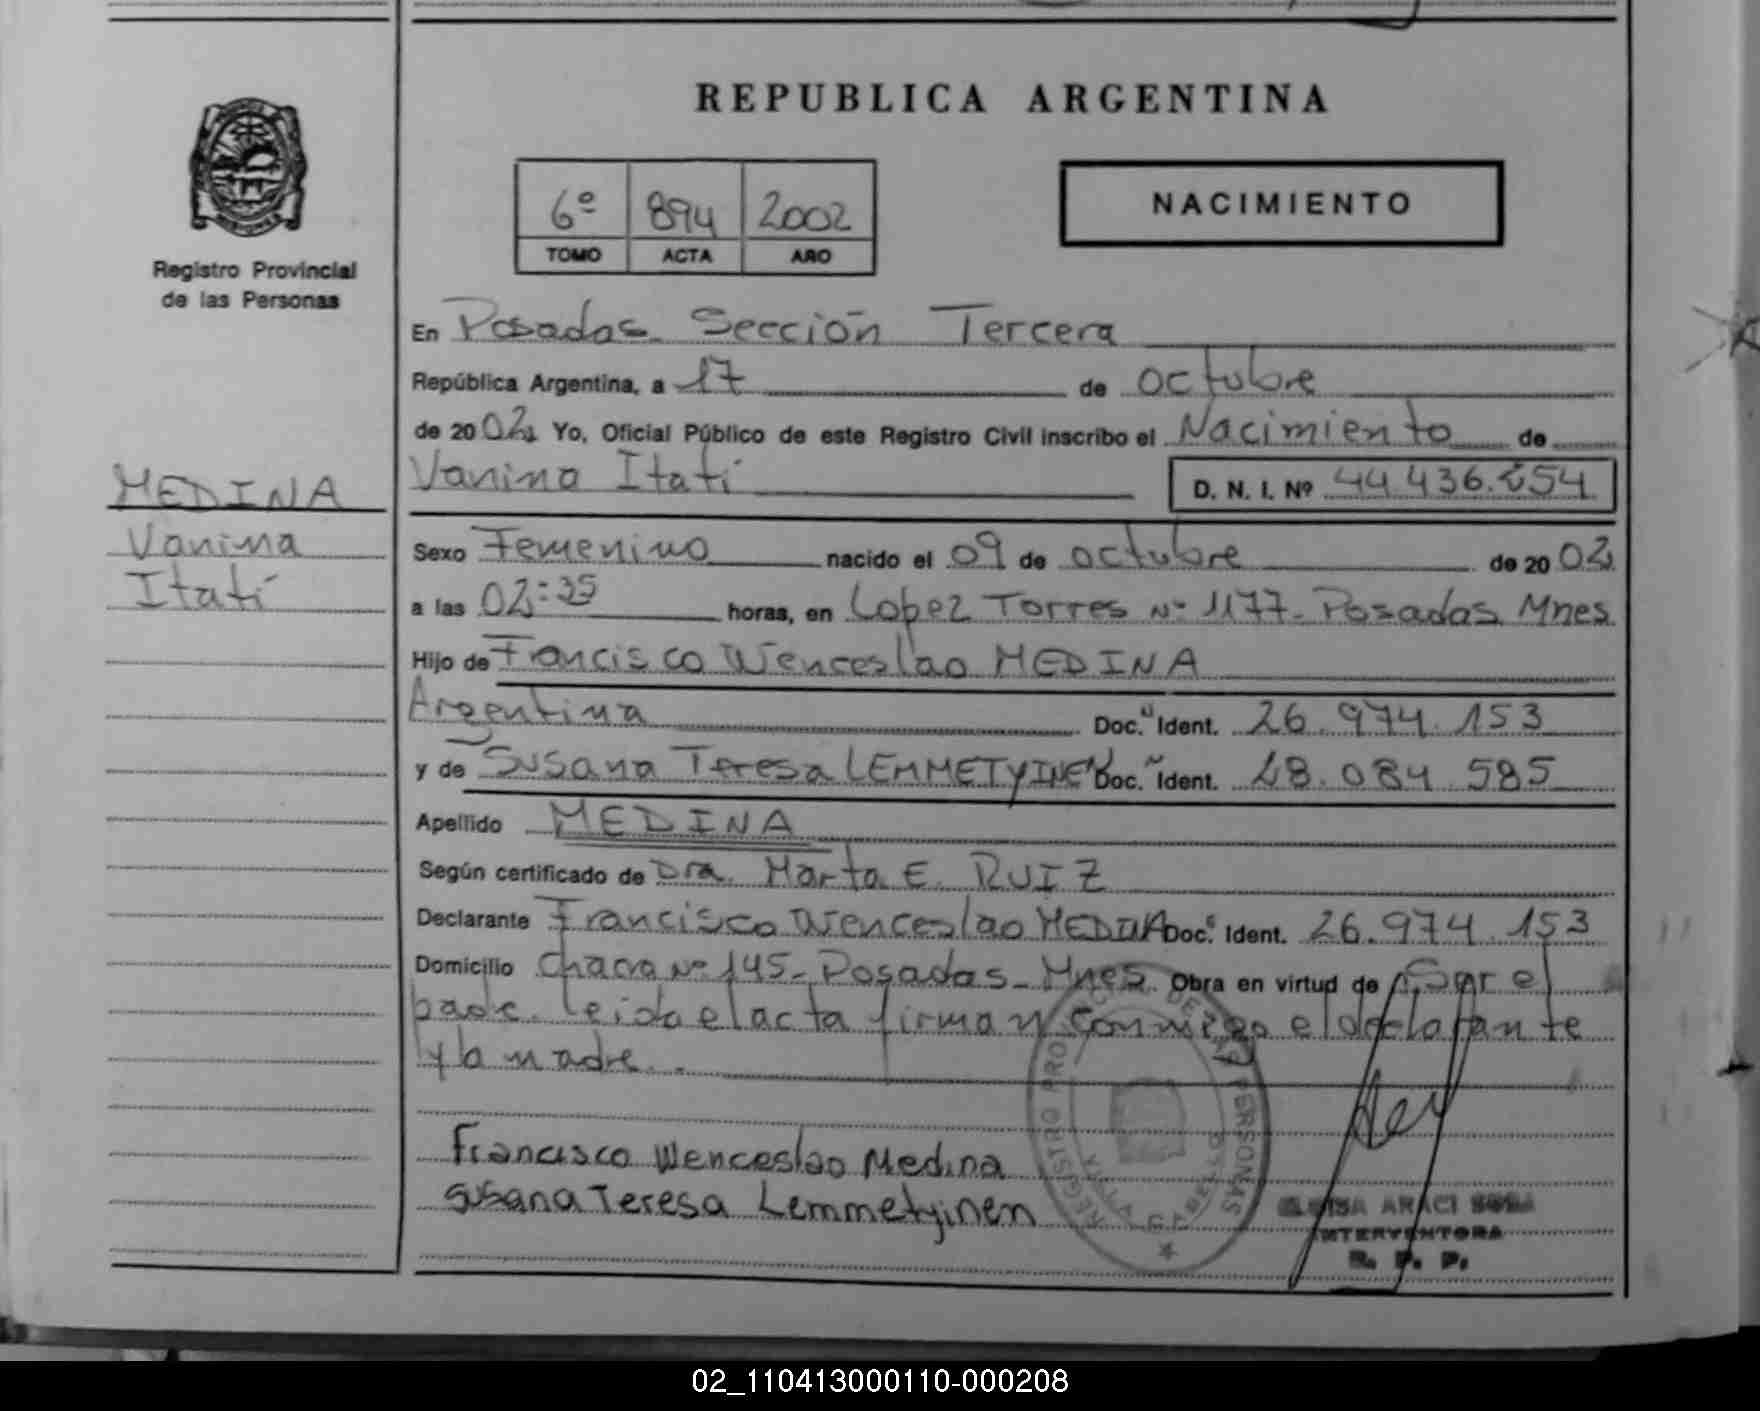 REPUBLICA ARGENTINA
6º 894 2002
TOMO ACTA AÑO
NACIMIENTO
Registro Provincial
de las Personas
MEDINA
Vanina
Itatí
En Posadas Sección Tercera
República Argentina, a 17 de octubre
de 2002 Yo, Oficial Público de este Registro Civil inscribo el Nacimiento de
Vanina Itatí D. N. I. Nº 44.436.254
Sexo Femenino nacido el 09 de octubre de 2002
a las 02:35 horas, en Lopez Torres Nº 1177- Posadas Mnes
Hijo de Francisco Wenceslao MEDINA
Argentina Doc. Ident. 26.974.153
y de Susana Teresa LEMMETYINEN Doc. Ident. 28.084.585
Apellido MEDINA
Según certificado de Dra. Marta E. RUIZ
Declarante Francisco Wenceslao MEDINA Doc. Ident. 26.974.153
Domicilio Chacra Nº 145- Posadas- Mnes. Obra en virtud de Ser el
padre. Leida el acta firman conmigo el declarante
y la madre.
Francisco Wenceslao Medina
Susana Teresa Lemmetyinen
REGISTRO PROVINCIAL DE LAS PERSONAS
ARACI SOSA
INTERVENTORA
R. P. P.
02_110413000110-000208